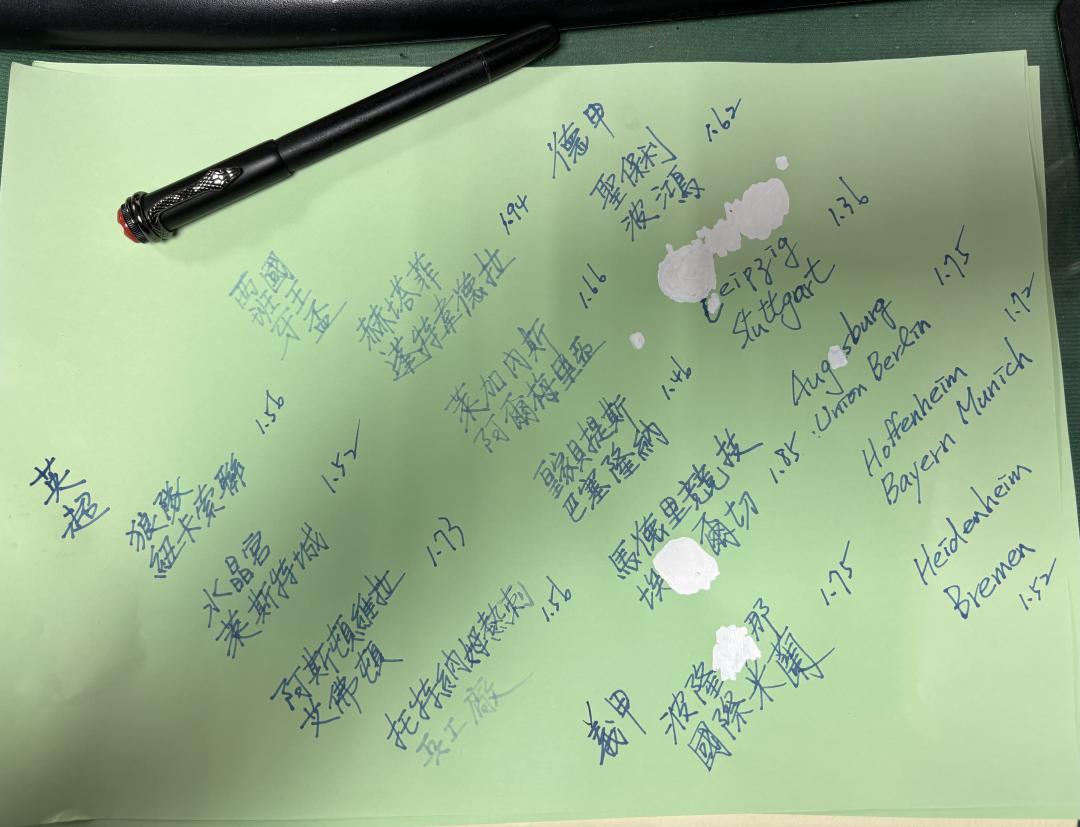 英超
狼隊
紐卡索聯
1.56
水晶宮
萊斯特城
1.52
阿斯頓維拉
艾佛頓
1.73
托特納姆熱刺
兵工廠
1.56
西班牙
國王盃
赫塔菲
蓬特韋德拉
1.94
萊加內斯
阿爾梅里亞
1.66
聖貝提斯
巴塞隆納
1.46
馬德里競技
埃 爾切
1.85
義甲
波隆 那
國際米蘭
1.75
德甲
聖保利
波鴻
1.62
eipzig
Stuttgart
1.36
Augsburg
Union Berlin
1.75
Hoffenheim
Bayern Munich
1.72
Heidenheim
Bremen
1.52